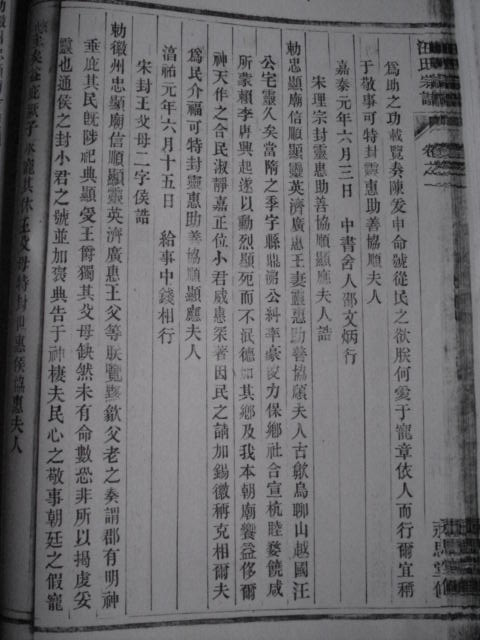 汪氏宗譜
卷之
爲助之功載覽奏陳发申命號從民之欲朕何愛于寵章依人而行爾宜稱
于敬事可特封靈惠助善協順夫人
嘉泰元年六月三日 中書舍人邵文炳行
宋理宗封靈惠助善協順顯應夫人誥
勅忠顯廟信順顯靈英濟廣惠王妻靈惠助善協順夫人古歙烏聊山越國汪
公宅靈久矣當隋之季字縣鼎沸公糾率豪夋力保鄉社合宣杭睦婺饒咸
所蒙賴李唐興起遂以勳烈顯死而不泯德加其鄉及我本朝廟饗益侈爾
神天作之合民淑靜嘉正位小君威惠渠著因民之請加錫徽稱克相爾夫
爲民介福可特封靈惠助善協順顯應夫人
淳祐元年六月十五日 給事中錢相行
宋封王父母二字侯誥
勅徽州忠顯廟信順顯靈英濟廣惠王父等朕覽歙父老之奏謂郡有明神
垂庇其民旣陟祀典顯受王爵獨其父母缺然未有命數恐非所以揭虔妥
靈也通侯之封小君之號並加褒典告于神棲夫民心之敬事朝廷之假寵